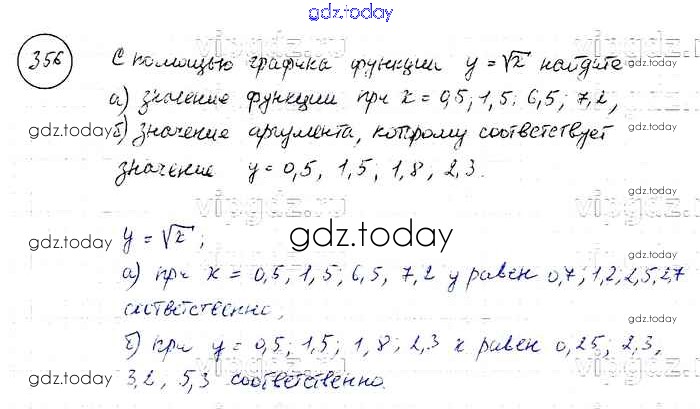 gdz.today
356
С помощью графика функции y = √x найдите
а) значение функции при x = 0,5; 1,5; 6,5; 7,2,
б) значение аргумента, которому соответствует
значение y = 0,5, 1,5; 1,8, 2,3.
y = √x;
gdz.today
а) при x = 0,5, 1,5; 6,5, 7,2 y равен 0,7; 1,2; 2,5; 2,7
соответственно;
б) при y = 0,5; 1,5; 1,8; 2,3 x равен 0,25; 2,3,
3,2, 5,3 соответственно.
gdz.today
gdz.today
gdz.today
gdz.today
gdz.today
gdz.today
gdz.today
gdz.today
vipgdz.ru
vipgdz.ru
vipgdz.ru
vipgdz.ru